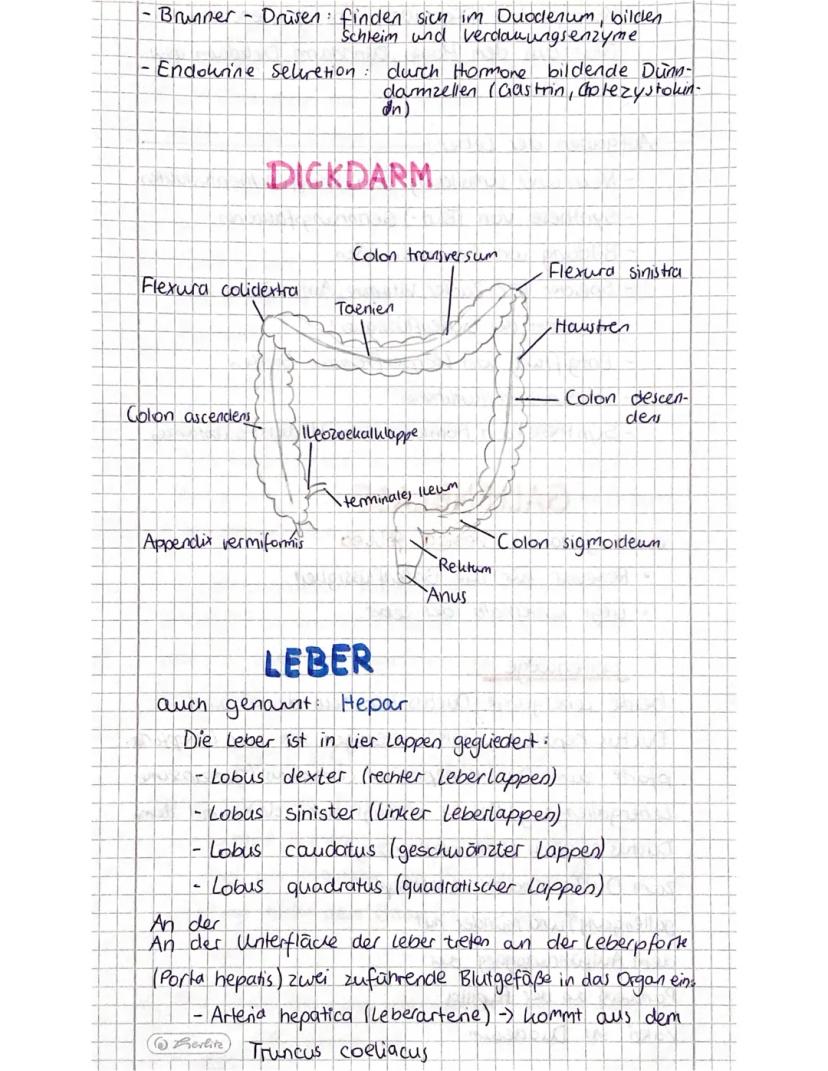 - Brunner - Drüsen: finden sich im Duodenum, bilden
Schleim und Verdauungsenzyme
- Endokrine Sekretion: durch Hormone bildende Dünn-
darmzellen (Gastrin, Cholezystokin-
in)
DICKDARM
Colon transversum
Flexura sinistra
Flexura colidextra
Taenien
Haustren
Colon descen-
dens
Colon ascendens
Ileozoekalklappe
terminales Ileum
Appendix vermiformis
Colon sigmoideum
Rektum
Anus
LEBER
auch genannt: Hepar
Die Leber ist in vier Lappen gegliedert:
- Lobus dexter (rechter Leberlappen)
- Lobus sinister (linker Leberlappen)
- Lobus caudatus (geschwänzter Lappen)
- Lobus quadratus (quadratischer Lappen)
An der
An der Unterfläche der Leber treten an der Leberpforte
(Porta hepatis) zwei zuführende Blutgefäße in das Organ ein:
- Arteria hepatica (Leberarterie) -> kommt aus dem
Truncus coeliacus
Herlitz